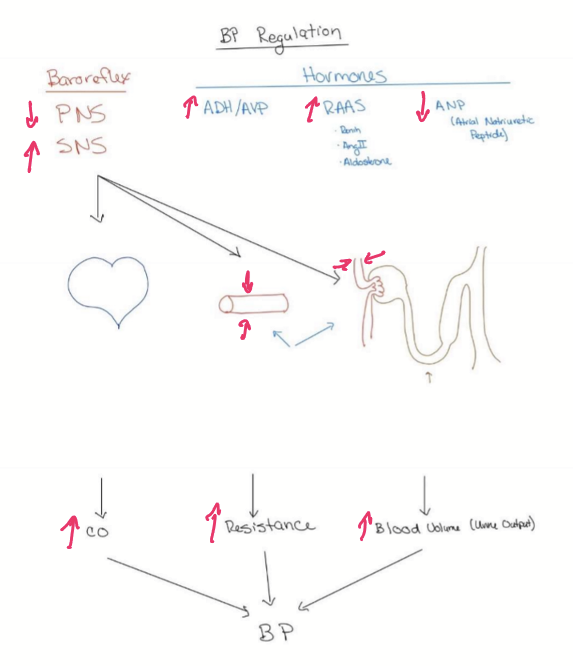 BP Regulation
Baroreflex
Hormones
↓ PNS
↑ SNS
↑ ADH/AVP
↑ RAAS
· Renin
· Ang II
· Aldosterone
↓ ANP
(Atrial Natriuretic
Peptide)
↑ CO
↑ Resistance
↑ Blood Volume (Urine Output)
BP